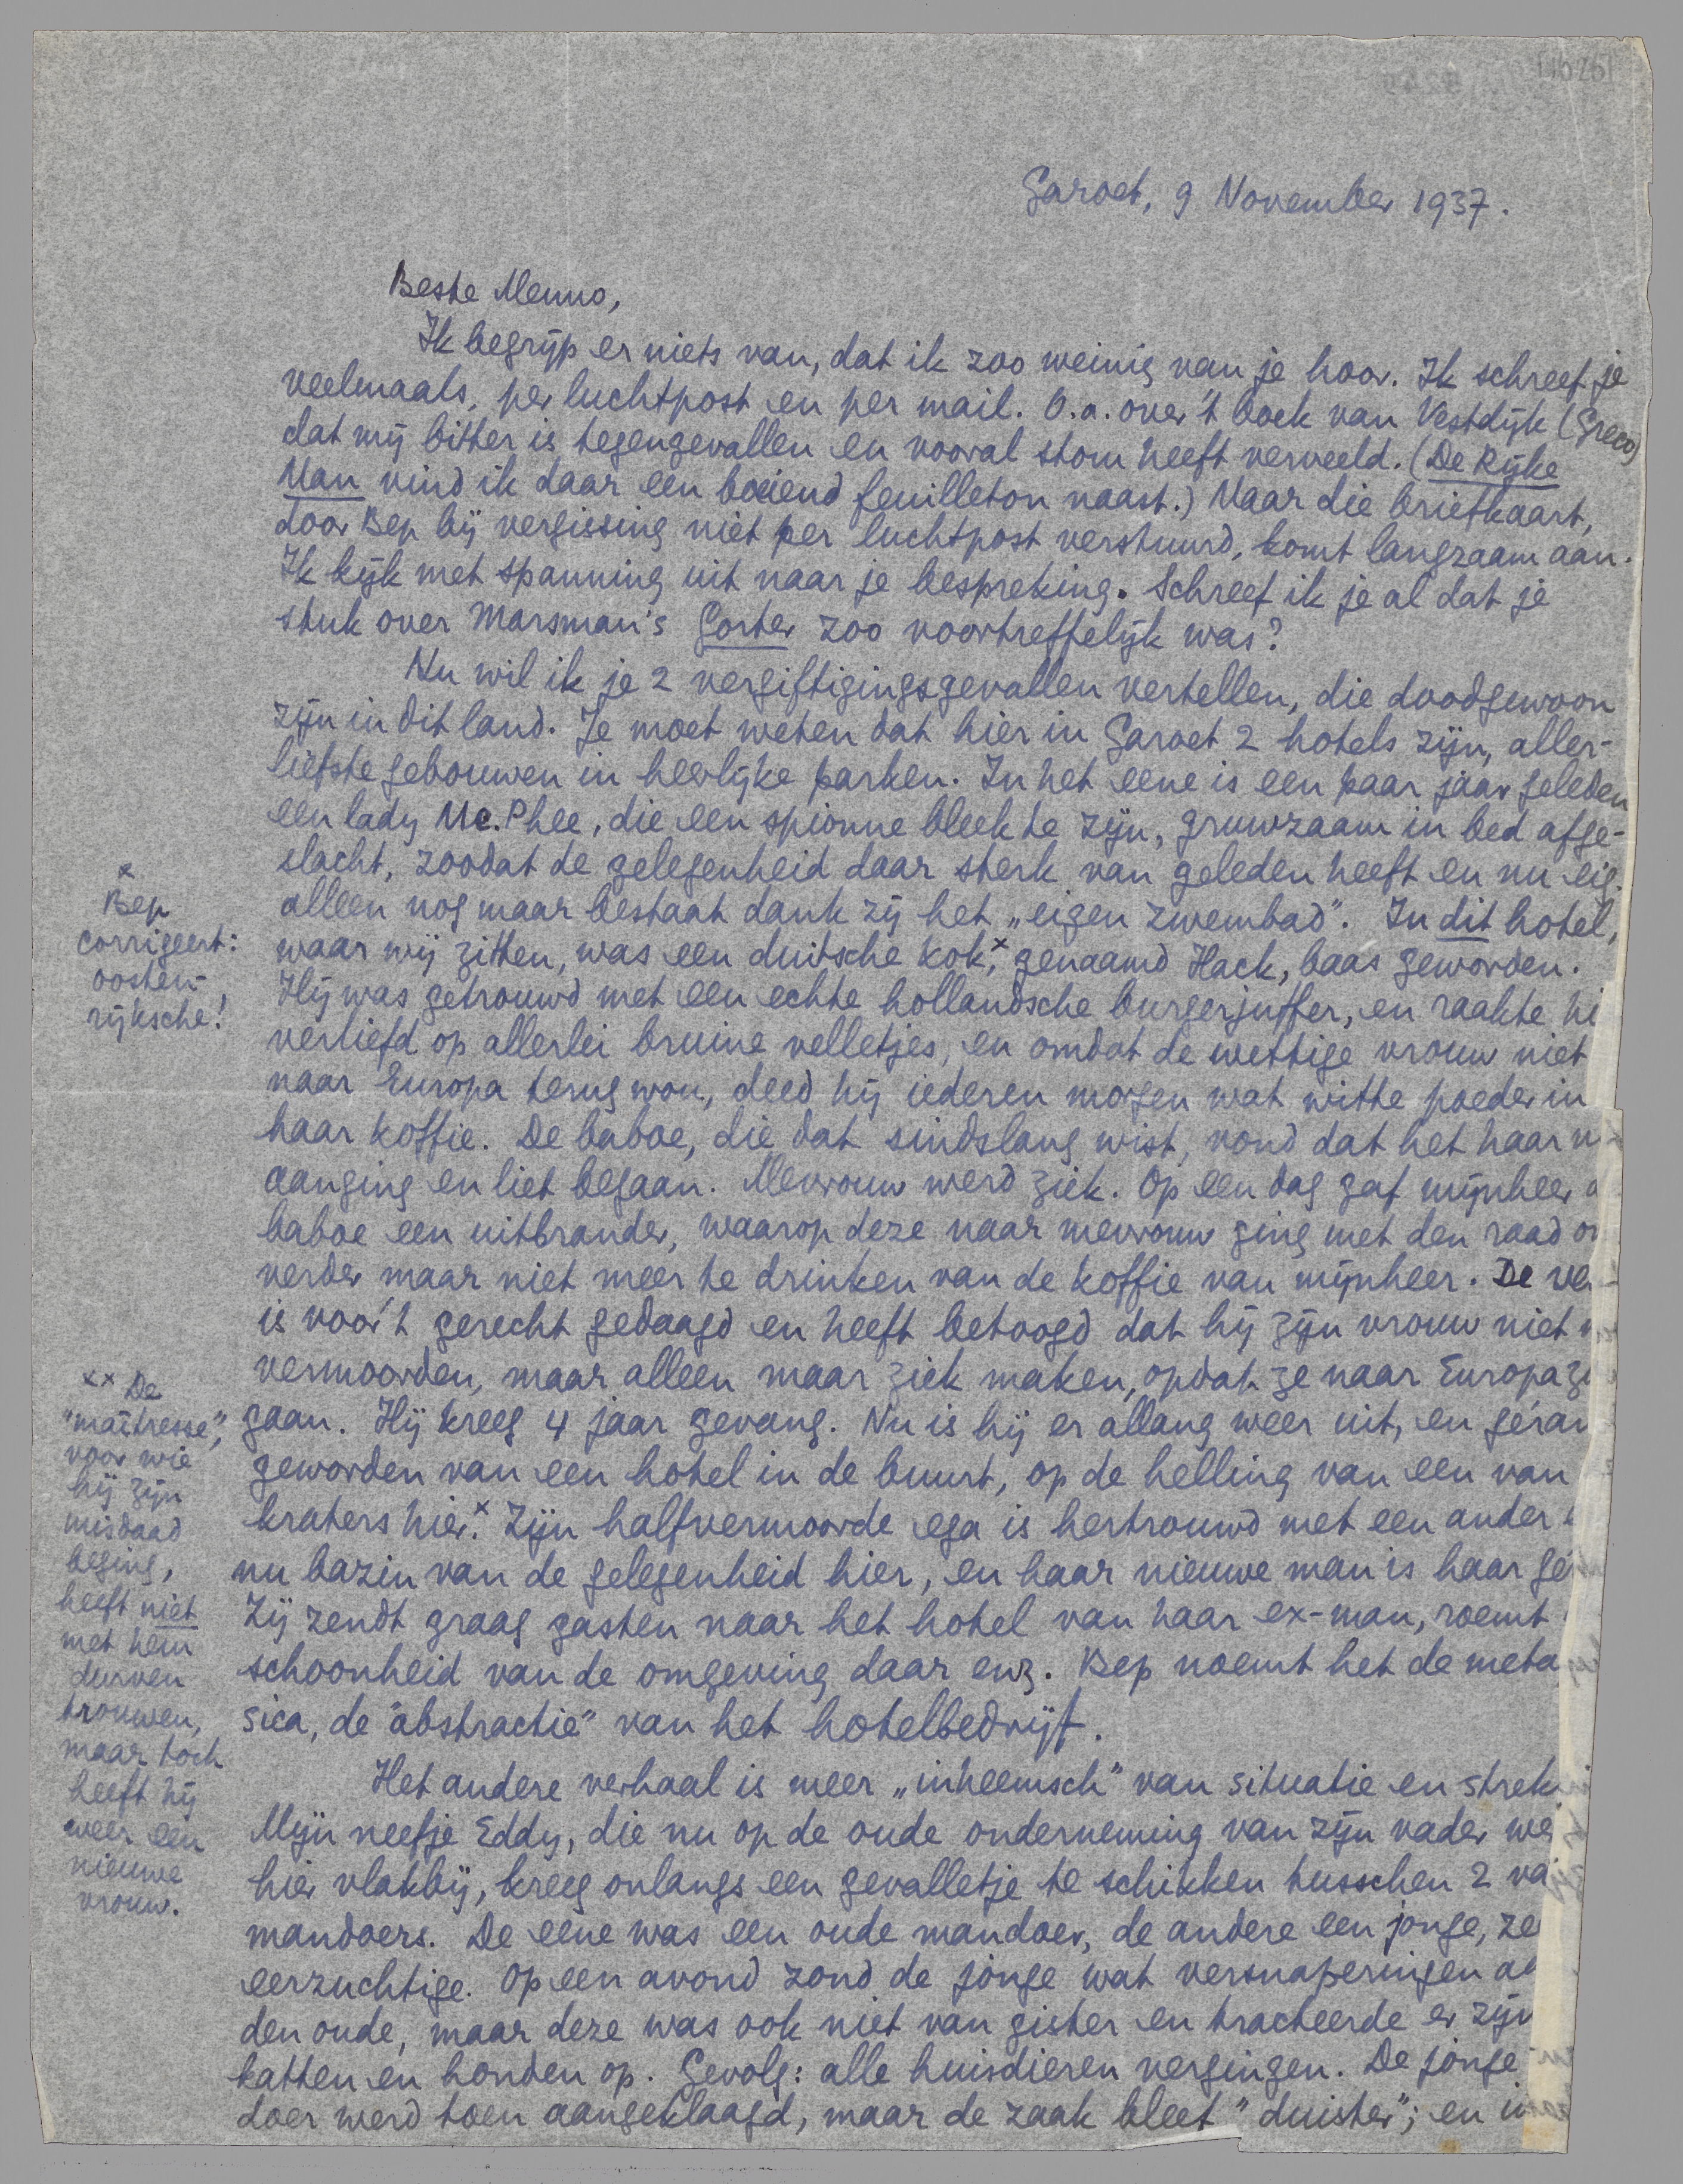 Garoet, 9 November 1937.
Beste Menno,
Ik begrijp er niets van, dat ik zoo weinig van je hoor. Ik schreef je
veelmaals, per luchtpost en per mail. O.a. over 't boek van Vestdijk (Greco)
dat mij bitter is tegengevallen en vooral stom heeft verveeld. (De Rijke
Man vind ik daar een boeiend feuilleton naast.) Maar die briefkaart,
door Bep bij vergissing niet per luchtpost verstuurd, komt langzaam aan.
Ik kijk met spanning uit naar je bespreking. Schreef ik je al dat je
stuk over Marsman's Gorter zoo voortreffelijk was?
Nu wil ik je 2 vergiftigingsgevallen vertellen, die doodgewoon
zijn in dit land. Je moet weten dat hier in Garoet 2 hotels zijn, aller-
liefste gebouwen in heerlijke parken. In het eene is een paar jaar geleden
een lady Mc.Phee, die een spionne bleek te zijn, gruwzaam in bed afge-
slacht, zoodat de gelegenheid daar sterk van geleden heeft en nu eig.
alleen nog maar bestaat dank zij het „eigen zwembad". In dit hotel,
waar wij zitten, was een duitsche kok,x genaamd Hack, baas geworden.
Hij was getrouwd met een echte hollandsche burgerjuffer, en raakte hi
verliefd op allerlei bruine velletjes, en omdat de wettige vrouw niet
naar Europa terug wou, deed hij iederen morgen wat witte poeder in
haar koffie. De baboe, die dat sindslang wist, vond dat het haar n
aanging en liet begaan. Mevrouw werd ziek. Op een dag gaf mijnheer d
baboe een uitbrander, waarop deze naar mevrouw ging met den raad om
verder maar niet meer te drinken van de koffie van mijnheer. De ver
is voor 't gerecht gedaagd en heeft betoogd dat hij zijn vrouw niet w
vermoorden, maar alleen maar ziek maken, opdat ze naar Europa zo
gaan. Hij kreeg 4 jaar gevang. Nu is hij er allang weer uit, en géran
geworden van een hotel in de buurt, op de helling van een van
kraters hier.x Zijn halfvermoorde ega is hertrouwd met een ander
nu bazin van de gelegenheid hier, en haar nieuwe man is haar gé
Zij zendt graag gasten naar het hotel van haar ex-man, roemt
schoonheid van de omgeving daar enz. Bep noemt het de meta
sica, de "abstractie" van het hotelbedrijf.
Het andere verhaal is meer „inheemsch" van situatie en strek
Mijn neefje Eddy, die nu op de oude onderneming van zijn vader we
hier vlakbij, kreeg onlangs een gevalletje te schikken tusschen 2 va
mandoers. De eene was een oude mandoer, de andere een jonge, ze
eerzuchtige. Op een avond zond de jonge wat versnaperingen aa
den oude, maar deze was ook niet van gister en tracteerde er zijn
katten en honden op. Gevolg: alle huisdieren vergingen. De jonge
doer werd toen aangeklaagd, maar de zaak bleef "duister"; en i
x
Bep
corrigeert:
oosten-
rijksche!
xx De
"maîtresse",
voor wie
hij zijn
misdaad
beging,
heeft niet
met hem
durven
trouwen,
maar toch
heeft hij
weer een
nieuwe
vrouw.